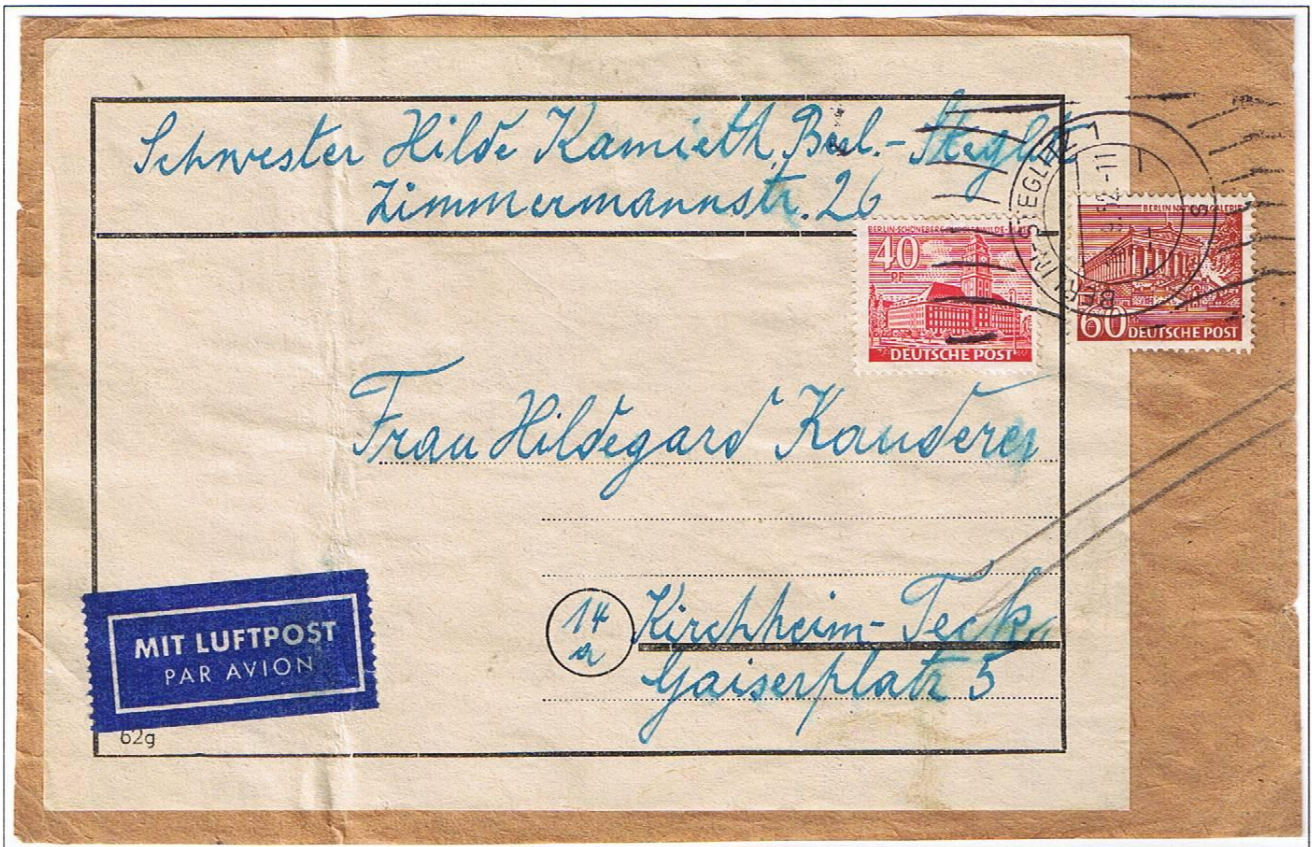 Schwester Hilde Kamieth, Berl.-Steglitz
Zimmermannstr. 26
BERLIN-STEGLITZ 1
52.-11
BERLIN-SCHÖNEBERG
40
PF
DEUTSCHE POST
BERLIN NATIONALGALERIE
60 DEUTSCHE POST
Frau Hildegard Kauderer
14
a
Kirchheim-Teck
Gaiserplatz 5
MIT LUFTPOST
PAR AVION
62g